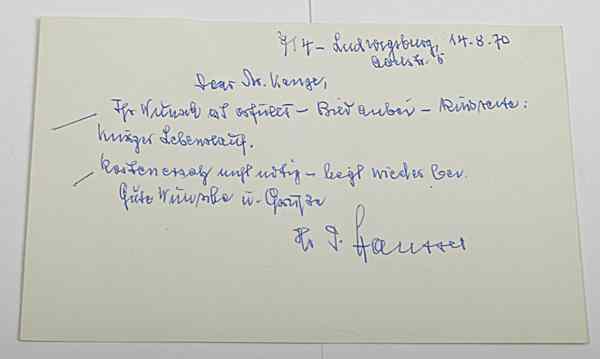 714 – Ludwigsburg, 14.8.70
5
Dear Mr.
Ihr Wunsch ist erfüllt – Bild anbei – Rückseite:
kurzer Lebenslauf.
Kostenersatz nicht nötig – liegt wieder bei.
Gute Wünsche u. Grüße
Ihr P. Hausser